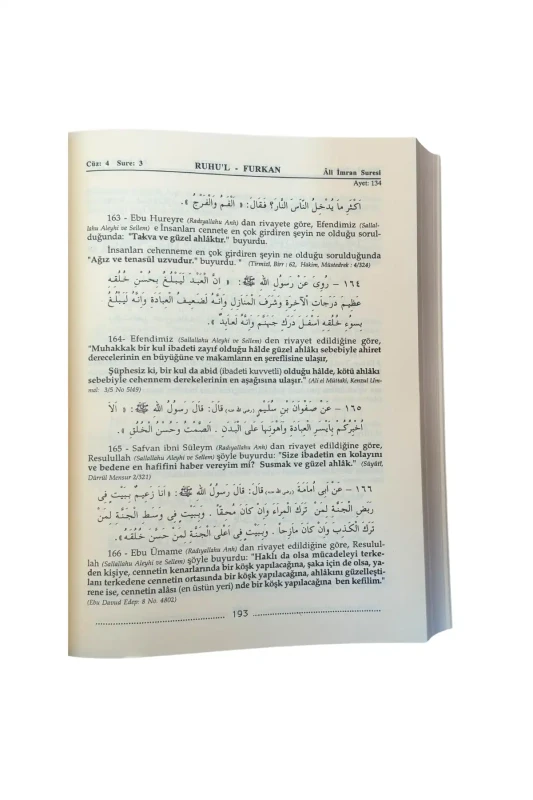 Cüz: 4 Sure: 3 RUHU'L - FURKAN Âli İmran Suresi
Ayet: 134
أَكْثَرُ مَا يُدْخِلُ النَّاسَ النَّارَ؟ فَقَالَ: «اَلْفَمُ وَالْفَرْجُ».
163 - Ebu Hureyre (Radıyallahu Anh) dan rivayete göre, Efendimiz (Sallal-
lahu Aleyhi ve Sellem) e İnsanları cennete en çok girdiren şeyin ne olduğu sorul-
duğunda: "Takva ve güzel ahlâktır." buyurdu.
İnsanları cehenneme en çok girdiren şeyin ne olduğu sorulduğunda
"Ağız ve tenasül uzvudur." buyurdu. " (Tirmizi, Birr : 62, Hakim, Müstedrek : 4/324)
١٦٤ – رُوِىَ عَنْ رَسُولُ اللهِ ﷺ: «اِنَّ الْعَبْدَ لَيَبْلُغُ بِحُسْنِ خُلُقِهِ
عَظِيمَ دَرَجَاتِ اْلآخِرَةِ وَشَرَفَ الْمَنَازِلِ وَاِنَّهُ لَضَعِيفُ الْعِبَادَةِ وَاِنَّهُ لَيَبْلُغُ
بِسُوءِ خُلُقِهِ اَسْفَلَ دَرَكِ جَهَنَّمَ وَاِنَّهُ لَعَابِدٌ».
164- Efendimiz (Sallallahu Aleyhi ve Sellem) den rivayet edildiğine göre,
"Muhakkak bir kul ibadeti zayıf olduğu hâlde güzel ahlâkı sebebiyle ahiret
derecelerinin en büyüğüne ve makamların en şereflisine ulaşır,
Şüphesiz ki, bir kul da abid (ibadeti kuvvetli) olduğu hâlde, kötü ahlâkı
sebebiyle cehennem derekelerinin en aşağısına ulaşır." (Ali el Müttaki, Kenzul Um-
mal: 3/5 No 5149)
١٦٥ – عَنْ صَفْوَانَ بْنِ سُلَيْمٍ قَالَ: قَالَ رَسُولُ اللهِ ﷺ: «اَلاَ
اُخْبِرُكُمْ بِاَيْسَرِ الْعِبَادَةِ وَاَهْوَنِهَا عَلَى الْبَدَنِ. اَلصَّمْتُ وَحُسْنُ الْخُلُقِ».
165 - Safvan ibni Süleym (Radıyallahu Anh) dan rivayet edildiğine göre,
Resulullah (Sallallahu Aleyhi ve Sellem) şöyle buyurdu: "Size ibadetin en kolayını
ve bedene en hafifini haber vereyim mi? Susmak ve güzel ahlâk." (Süyûtî,
Dürrül Mensur 2/321)
١٦٦ – عَنْ اَبِى اُمَامَةَ قَالَ: قَالَ رَسُولُ اللهِ ﷺ: «اَنَا زَعِيمٌ بِبَيْتٍ فِى
رَبَضِ الْجَنَّةِ لِمَنْ تَرَكَ الْمِرَاءَ وَاِنْ كَانَ مُحِقًّا. وَبِبَيْتٍ فِى وَسَطِ الْجَنَّةِ لِمَنْ
تَرَكَ الْكَذِبَ وَاِنْ كَانَ مَازِحًا. وَبِبَيْتٍ فِى اَعْلَى الْجَنَّةِ لِمَنْ حَسَّنَ خُلُقَهُ».
166 - Ebu Ümame (Radıyallahu Anh) dan rivayet edildiğine göre, Resulul-
lah (Sallallahu Aleyhi ve Sellem) şöyle buyurdu: "Haklı da olsa mücadeleyi terke-
den kişiye, cennetin kenarlarında bir köşk yapılacağına, şaka için de olsa, ya-
lanı terkedene cennetin ortasında bir köşk yapılacağına, ahlâkını güzelleşti-
rene ise, cennetin alâsı (en üstün yeri) nde bir köşk yapılacağına ben kefilim."
(Ebu Davud Edep: 8 No. 4802)
193